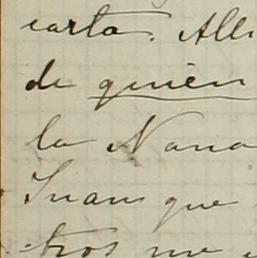 carta. Alli
de quién
la Nana
Juan que
tros me